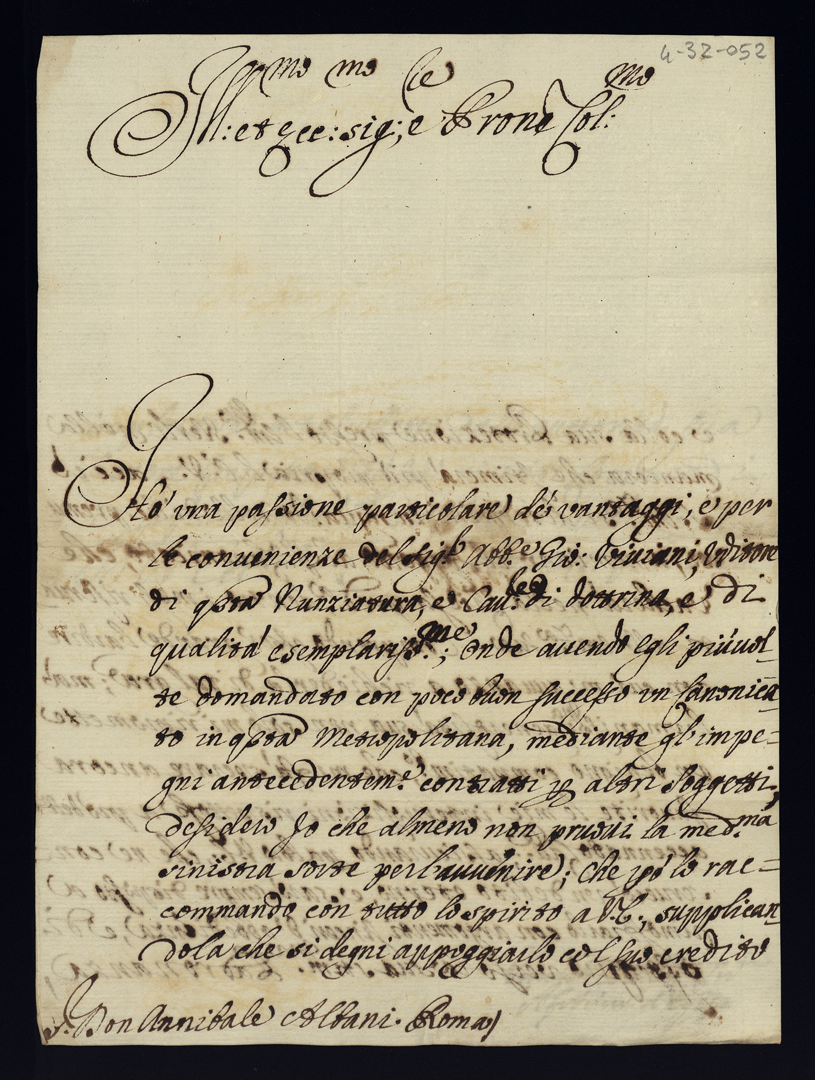 4-32-052
Ill:mo et Ecc:mo sig:re e Prone Col:mo
Hò una passione particolare dè vantaggi, e per
le convenienze del Sig.r Abb.e Gio: Viviani, Uditore
di qsta Nunziatura, e Cau.re di dottrina, e di
qualità esemplariss.me; onde auendo egli più uol-
te domandato con poco buon successo un Canonica-
to in qsta Metropolitana, mediante gl'impe-
gni antecedentem.e contratti p altri soggetti,
desidero Io che almeno non pruovi la med.ma
sinistra sorte per l'auuenire; che però lo rac-
commando con tutto lo spirito a V.E., supplican-
dola che si degni appoggiarlo col suo credito
S. Don Annibale Albani. Roma